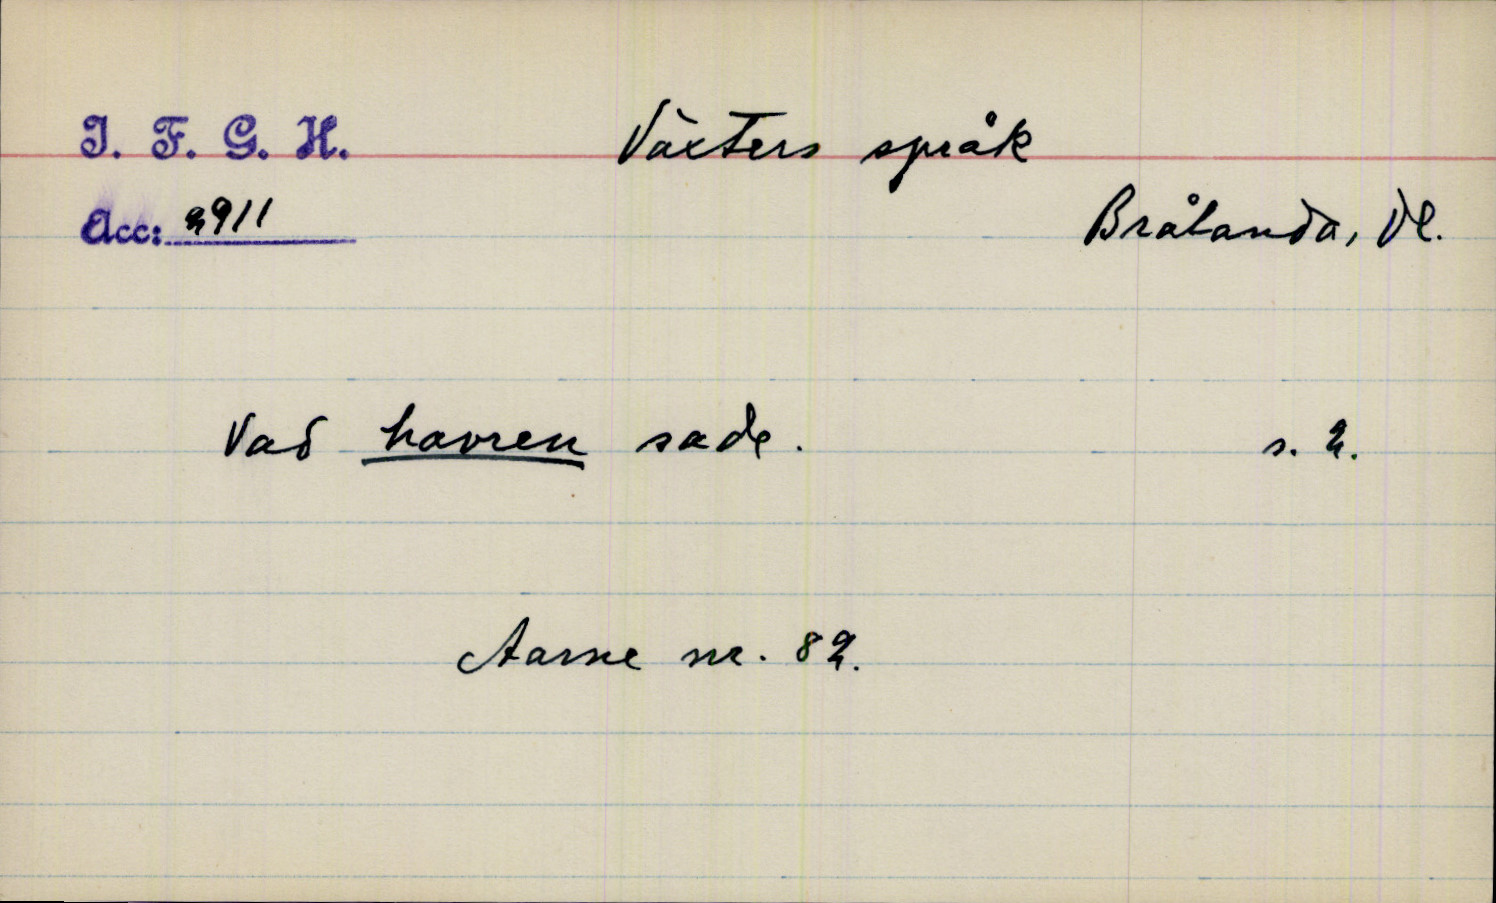 I. F. G. H. Växters språk
Acc: 2911 Brålanda, Dl.
Vad havren sade. s. 2.
Aarne nr. 82.